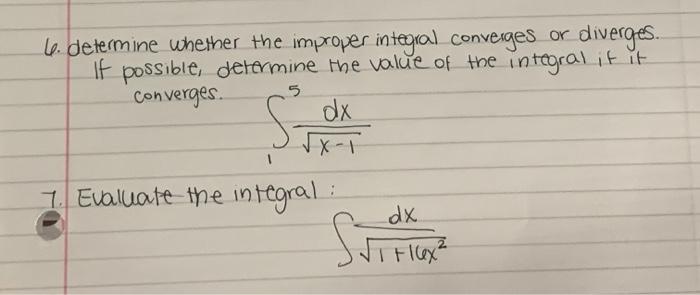 6. determine whether the improper integral converges or diverges.
If possible, determine the value of the integral if it
converges.
∫₁⁵ dx/√(x-1)
7. Evaluate the integral:
∫ dx/√(1+16x²)